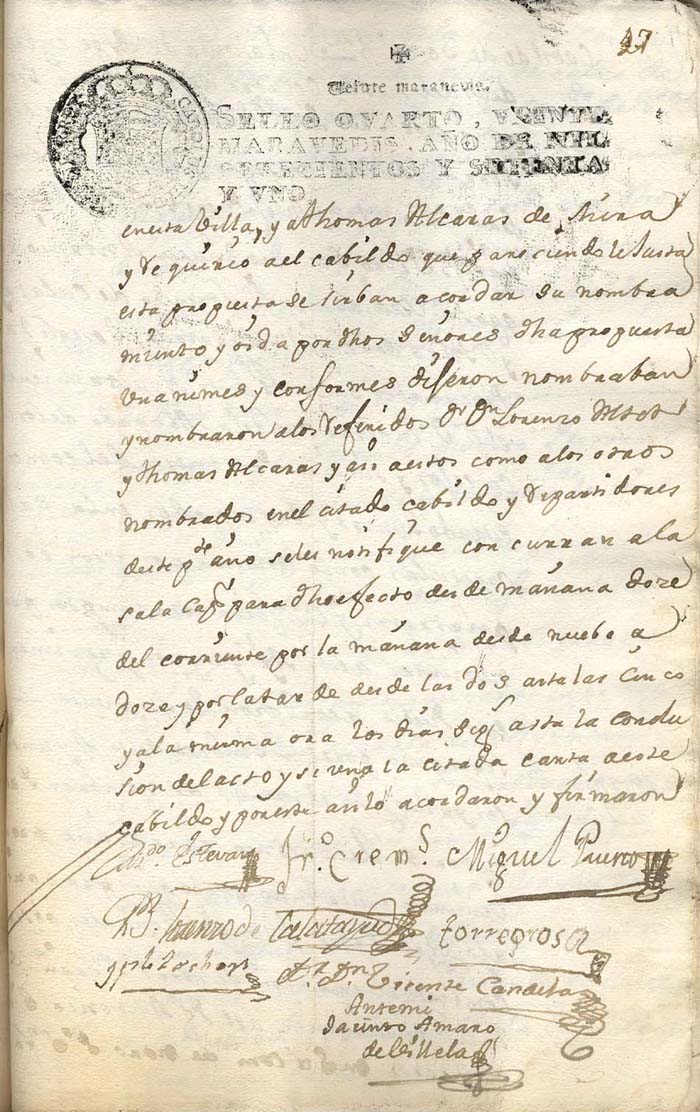 27
Veinte maravedis.
SELLO QVARTO, VEINTE
MARAVEDIS, AÑO DE MIL
SETECIENTOS Y SETENTA
Y VNO
enesta Villa, y a thomas Alcaras de
y requirio ael cabildo que pareciendole Justa
esta propuesta se sirban acordar su nombra
miento y oida por dhos Señores dha propuesta
vnanimes y conformes dijeron nombraban
y nombraron alos referidos Dr. Dn. Lorenzo
y thomas Alcaras y asi aestos como alos otros
nombrados enel citado cabildo y repartidores
deste pte. año seles notifique concurran ala
sala Capr. para dho efecto desde mañana doze
del corriente por la mañana desde nuebe a
doze y por latarde desde las dos asta las Cinco
y ala misma ora los dias sigs. asta la conclu
sion del acto y se vna la citada carta aeste
cabildo y poreste asi lo acordaron y firmaron
Estevan Miguel
de Calatayud Torregrosa
Dr. Dn. Vicente Candela
Antemi
Jacinto Amaro
de